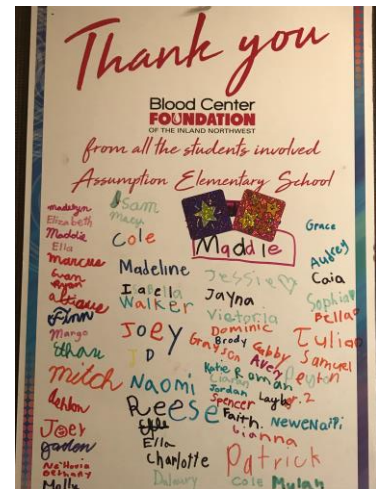 Thank you
Blood Center
FOUNDATION
OF THE INLAND NORTHWEST
from all the students involved
Assumption Elementary School
madelyn
Elizabeth
Maddie
Ella
marcus
Evan
Ryan
Finn
Margo
Ethan
mitch
Ashlon
Joey
Jaden
Bethany
Molly
Sam
Macy
Cole
Madeline
Isabella
Walker
Joey
J D
Naomi
Reese
Ella
Charlotte
Delaney
Maddie
Jessie
Jayna
Victoria
Dominic
Grayson
Brody
Gabby
Avery
Katie
Roman
Ciaran
Jordan
Layla
Spencer
Faith
Gianna
Patrick
Cole
Mylan
Grace
Aubrey
Caia
Sophia
Bella
Julia
Samuel
Peyton
J.2